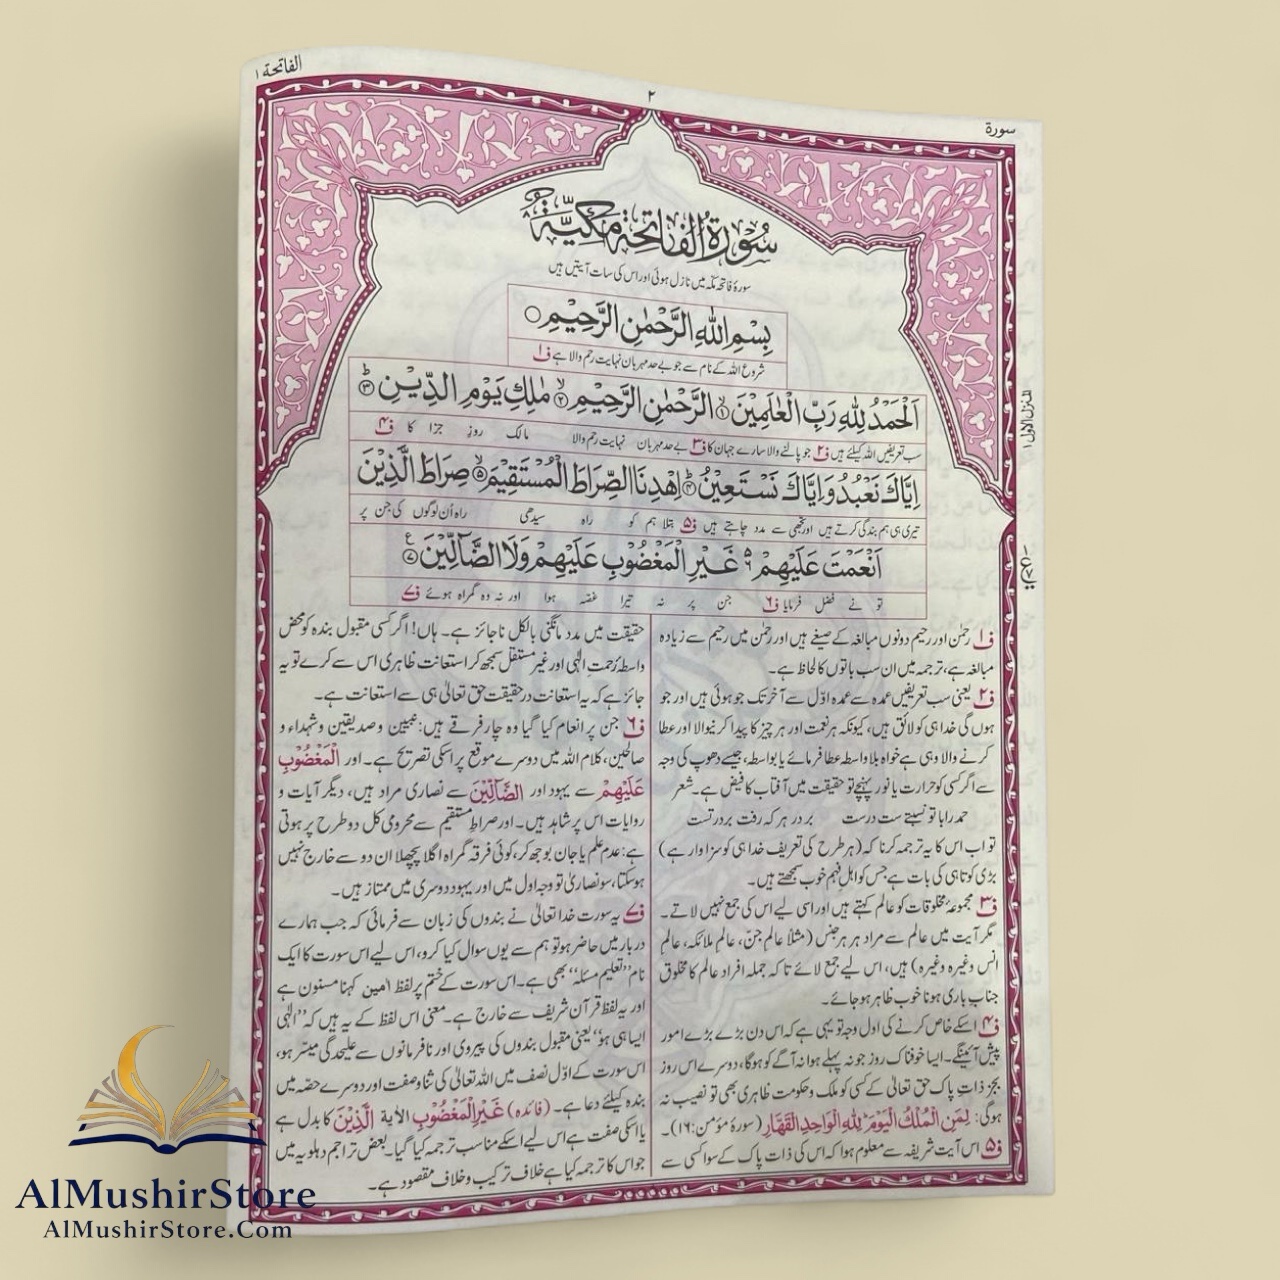 الفاتحة ١
٢
سورة
سُوْرَةُ الْفَاتِحَةِ مَكِّيَّةٌ
سورۂ فاتحہ مکّہ میں نازل ہوئی اور اس کی سات آیتیں ہیں
بِسْمِ اللهِ الرَّحْمٰنِ الرَّحِيْمِ ○
شروع اللہ کے نام سے جو بے حد مہربان نہایت رحم والا ہے ف۱
اَلْحَمْدُ لِلّٰهِ رَبِّ الْعٰلَمِيْنَ ۙ﴿۱﴾ الرَّحْمٰنِ الرَّحِيْمِ ۙ﴿۲﴾ مٰلِكِ يَوْمِ الدِّيْنِ ؕ﴿۳﴾
سب تعریفیں اللہ کیلئے ہیں ف۲ جو پالنے والا سارے جہان کا ف۳ بے حد مہربان نہایت رحم والا مالک روزِ جزا کا ف۴
اِيَّاكَ نَعْبُدُ وَاِيَّاكَ نَسْتَعِيْنُ ؕ﴿۴﴾ اِهْدِنَا الصِّرَاطَ الْمُسْتَقِيْمَ ۙ﴿۵﴾ صِرَاطَ الَّذِيْنَ
تیری ہی ہم بندگی کرتے ہیں اور تجھی سے مدد چاہتے ہیں ف۵ بتلا ہم کو راہ سیدھی راہ اُن لوگوں کی جن پر
اَنْعَمْتَ عَلَيْهِمْ ۙ۬﴿۶﴾ غَيْرِ الْمَغْضُوْبِ عَلَيْهِمْ وَلَا الضَّآلِّيْنَ ﴿۷﴾ ع
تو نے فضل فرمایا ف۶ جن پر نہ تیرا غصہ ہوا اور نہ وہ گمراہ ہوئے ف۷
ف۱ رحمٰن اور رحیم دونوں مبالغہ کے صیغے ہیں اور رحمٰن میں رحیم سے زیادہ
مبالغہ ہے، ترجمہ میں ان سب باتوں کا لحاظ ہے۔
ف۲ یعنی سب تعریفیں عمدہ سے عمدہ اوّل سے آخر تک جو ہوئی ہیں اور جو
ہوں گی خدا ہی کو لائق ہیں، کیونکہ ہر نعمت اور ہر چیز کا پیدا کرنیوالا اور عطا
کرنے والا وہی ہے خواہ بلا واسطہ عطا فرمائے یا بواسطہ، جیسے دھوپ کی وجہ
سے اگر کسی کو حرارت یا نور پہنچے تو حقیقت میں آفتاب کا فیض ہے۔ شعر
حمد را با تو نسبتے ست درست بر در ہر کہ رفت بر در تست
تو اب اس کا یہ ترجمہ کرنا کہ (ہر طرح کی تعریف خدا ہی کو سزاوار ہے)
بڑی کوتاہی کی بات ہے جس کو اہلِ فہم خوب سمجھتے ہیں۔
ف۳ مجموعۂ مخلوقات کو عالم کہتے ہیں اور اسی لیے اس کی جمع نہیں لاتے۔
مگر آیت میں عالم سے مراد ہر ہر جنس (مثلاً عالم جنّ، عالم ملائکہ، عالم
انس وغیرہ وغیرہ) ہیں، اس لیے جمع لائے تاکہ جملہ افراد عالم کا مخلوق
جناب باری ہونا خوب ظاہر ہوجائے۔
ف۴ اسکے خاص کرنے کی اول وجہ تو یہی ہے کہ اس دن بڑے بڑے امور
پیش آئینگے۔ ایسا خوفناک روز جو نہ پہلے ہوا نہ آگے کو ہوگا، دوسرے اس روز
بجز ذاتِ پاک حق تعالیٰ کے کسی کو ملک وحکومت ظاہری بھی تو نصیب نہ
ہوگی: لِمَنِ الْمُلْكُ الْيَوْمَ لِلّٰهِ الْوَاحِدِ الْقَهَّارِ (سورۂ مؤمن: ۱۶)۔
ف۵ اس آیت شریفہ سے معلوم ہوا کہ اس کی ذات پاک کے سوا کسی سے
حقیقت میں مدد مانگنی بالکل ناجائز ہے۔ ہاں! اگر کسی مقبول بندہ کو محض
واسطۂ رحمتِ الٰہی اور غیر مستقل سمجھ کر استعانت ظاہری اس سے کرے تو یہ
جائز ہے کہ یہ استعانت درحقیقت حق تعالیٰ ہی سے استعانت ہے۔
ف۶ جن پر انعام کیا گیا وہ چار فرقے ہیں: نبیین وصدیقین وشہداء و
صالحین، کلام اللہ میں دوسرے موقع پر اسکی تصریح ہے۔ اور الْمَغْضُوْبِ
عَلَيْهِمْ سے یہود اور الضَّآلِّيْنَ سے نصاریٰ مراد ہیں، دیگر آیات و
روایات اس پر شاہد ہیں۔ اور صراطِ مستقیم سے محرومی کل دو طرح پر ہوتی
ہے: عدم علم یا جان بوجھ کر، کوئی فرقہ گمراہ اگلا پچھلا ان دو سے خارج نہیں
ہوسکتا، سو نصاریٰ تو وجہ اول میں اور یہود دوسری میں ممتاز ہیں۔
ف۷ یہ سورت خدا تعالیٰ نے بندوں کی زبان سے فرمائی کہ جب ہمارے
دربار میں حاضر ہو تو ہم سے یوں سوال کیا کرو، اس لیے اس سورت کا ایک
نام ”تعلیم مسئلہ“ بھی ہے۔ اس سورت کے ختم پر لفظ اٰمین کہنا مسنون ہے
اور یہ لفظ قرآن شریف سے خارج ہے۔ معنی اس لفظ کے یہ ہیں کہ ”الٰہی
ایسا ہی ہو“ یعنی مقبول بندوں کی پیروی اور نافرمانوں سے علیحدگی میسّر ہو،
اس سورت کے اوّل نصف میں اللہ تعالیٰ کی ثنا وصفت اور دوسرے حصّہ میں
بندہ کیلئے دعا ہے۔ (فائدہ) غَيْرِ الْمَغْضُوْبِ الآية الَّذِيْنَ کا بدل ہے
یا اسکی صفت ہے اس لیے اسکے مناسب ترجمہ کیا گیا۔ بعض تراجم دہلویہ میں
جو اس کا ترجمہ کیا ہے خلاف ترکیب وخلاف مقصود ہے۔
المنزل الاول ۱
AlMushirStore
AlMushirStore.Com